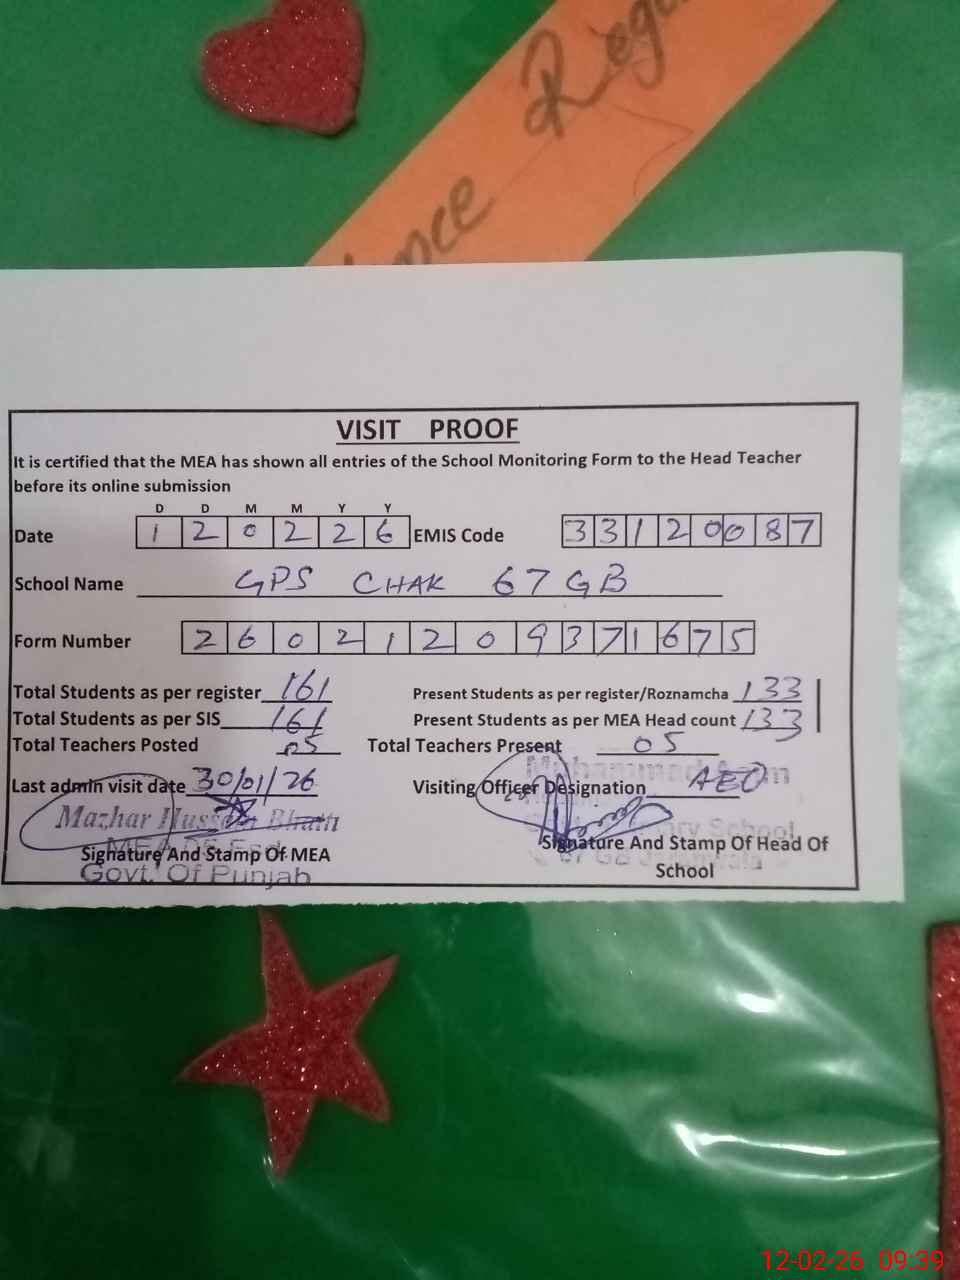 Regi
nce
VISIT PROOF
It is certified that the MEA has shown all entries of the School Monitoring Form to the Head Teacher
before its online submission
D D M M Y Y
Date 1 2 0 2 2 6 EMIS Code 3 3 1 2 0 0 8 7
School Name GPS CHAK 67 GB
Form Number 2 6 0 2 1 2 0 9 3 7 1 6 7 5
Total Students as per register 161 Present Students as per register/Roznamcha 133
Total Students as per SIS 161 Present Students as per MEA Head count 133
Total Teachers Posted 05 Total Teachers Present 05
Last admin visit date 30/01/26 Visiting Officer Designation AEO
Mazhar Hussain Bhatti Muhammad
Signature And Stamp Of MEA Signature And Stamp Of Head Of
Govt. Of Punjab School
12-02-26 09:39